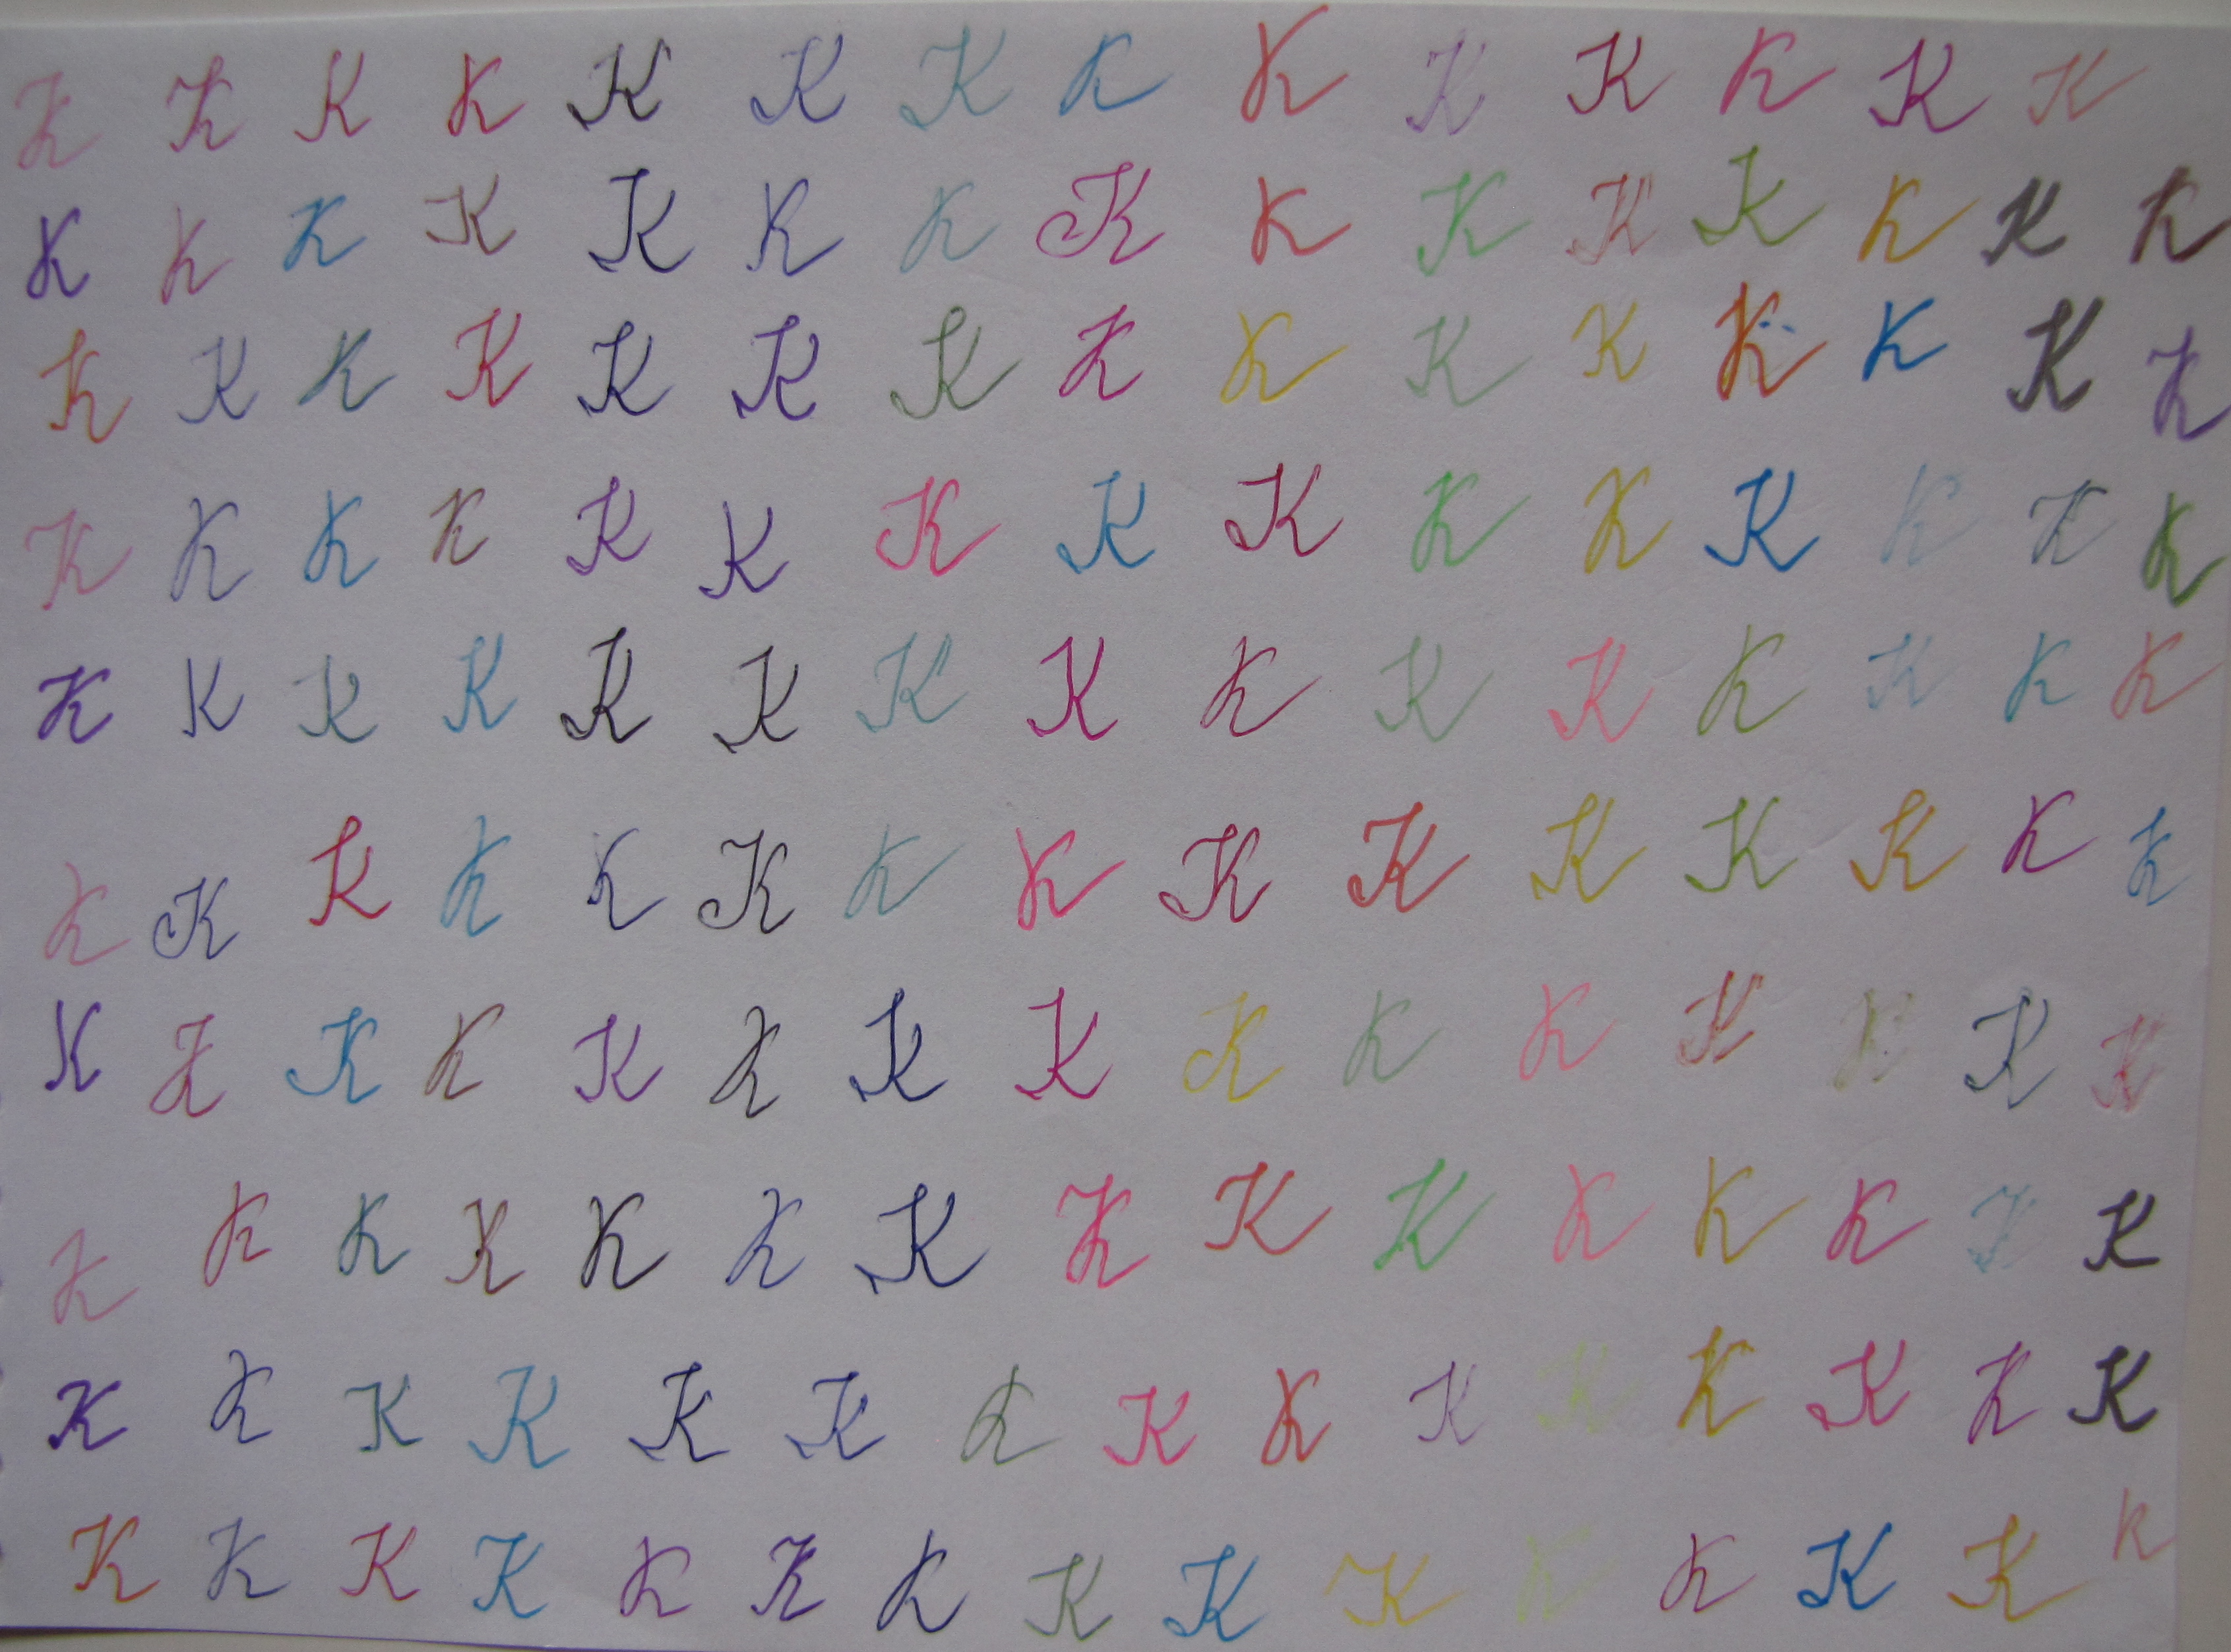 K K K K K K K K K K K K K K
K K K K K K K K K K K K K K K
K K K K K K K K K K K K K K K
K K K K K K K K K K K K K K K
K K K K K K K K K K K K K K K
K K K K K K K K K K K K K K K
K K K K K K K K K K K K K K K
K K K K K K K K K K K K K K K
K K K K K K K K K K K K K K K
K K K K K K K K K K K K K K K